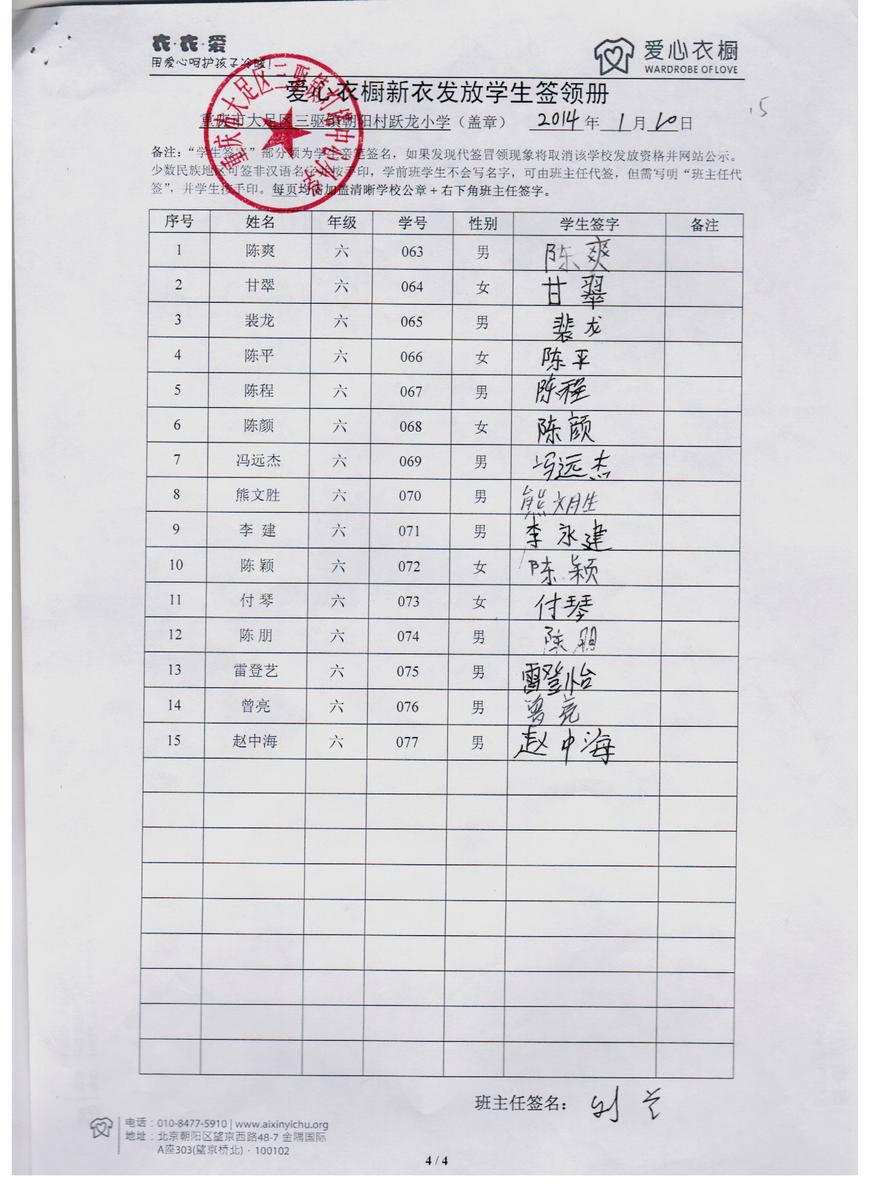 衣·衣·爱
用爱心呵护孩子冷暖！
爱心衣橱
WARDROBE OF LOVE
15
爱心衣橱新衣发放学生签领册
重庆市大足区三驱镇朝阳村跃龙小学（盖章） 2014 年 1 月 10 日
备注：“学生签字”部分须为学生亲笔签名，如果发现代签冒领现象将取消该学校发放资格并网站公示。
少数民族地区可签非汉语名字并按手印，学前班学生不会写名字，可由班主任代签，但需写明“班主任代
签”，并学生按手印。每页均需加盖清晰学校公章+右下角班主任签字。
序号 姓名 年级 学号 性别 学生签字 备注
1 陈爽 六 063 男 陈爽
2 甘翠 六 064 女 甘翠
3 裴龙 六 065 男 裴龙
4 陈平 六 066 女 陈平
5 陈程 六 067 男 陈程
6 陈颜 六 068 女 陈颜
7 冯远杰 六 069 男 冯远杰
8 熊文胜 六 070 男 熊文胜
9 李 建 六 071 男 李永建
10 陈 颖 六 072 女 陈颖
11 付 琴 六 073 女 付琴
12 陈 朋 六 074 男 陈朋
13 雷登艺 六 075 男 雷登怡
14 曾亮 六 076 男 曾亮
15 赵中海 六 077 男 赵中海
班主任签名：
电话：010-8477-5910 | www.aixinyichu.org
地址：北京朝阳区望京西路48-7 金隅国际
A座303(望京桥北)·100102
4 / 4